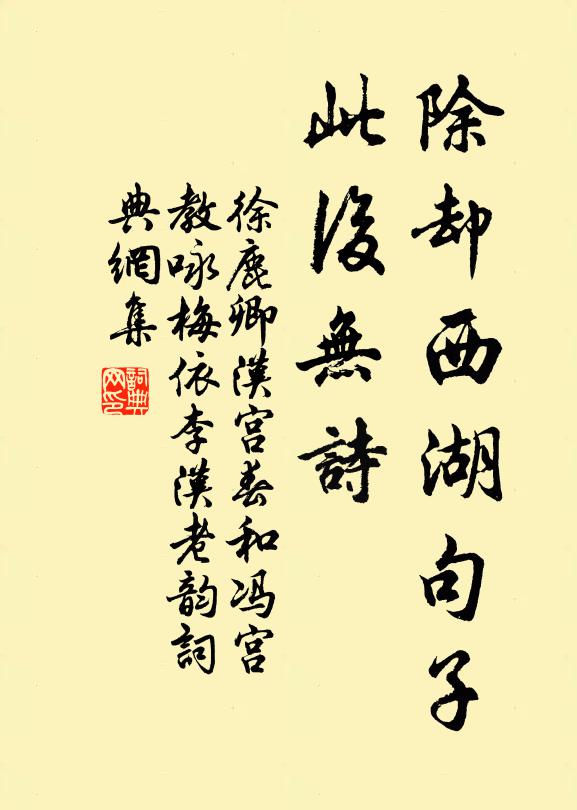 除却西湖句子
此後無詩
徐鹿卿漢宮春和冯宮
教咏梅依李漢老韵詞
典網集
詞典
网印